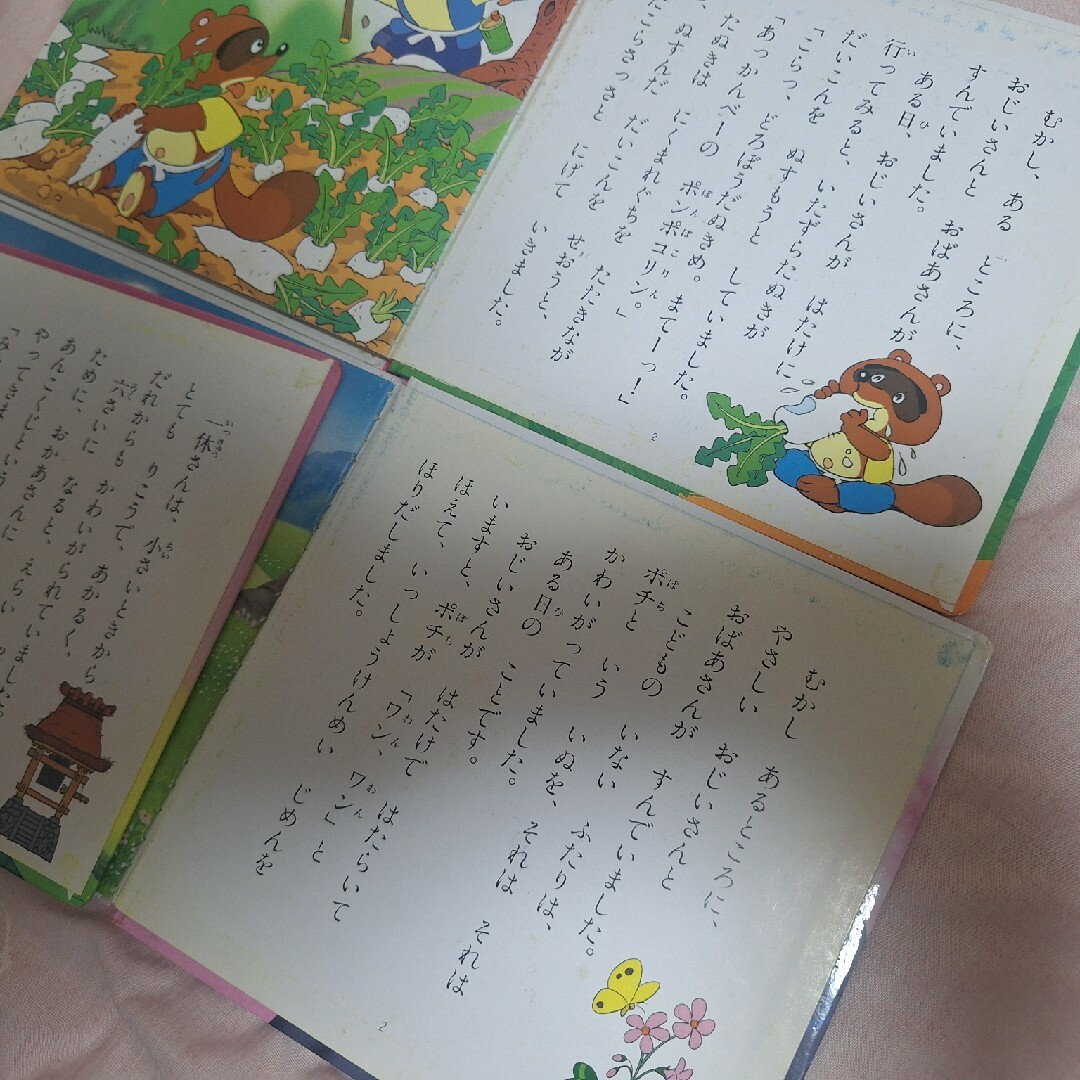 むかし、ある ところに、
おじいさんと おばあさんが
すんでいました。
ある日、 おじいさんが はたけに
行ってみると、 いたずらたぬきが
だいこんを ぬすもうと していました。
「こらっ、 どろぼうだぬきめ。 まてーっ！」
「あっかんべーの ポンポコリン。」
たぬきは にくまれぐちを たたきなが
ぬすんだ だいこんを せおうと、
たこらさっさと にげて いきました。
2
一休さんは、小さいときから
とても りこうで、あかるく、
だれからも かわいがられていました。
六さいに なると、えらい
ために、 おかあさんに
あんこくじ
やってきました
むかし あるところに、
やさしい おじいさんと
おばあさんが すんでいました。
こどもの いない ふたりは、
ポチと いう いぬを、 それは それは
かわいがっていました。
ある日の ことです。
おじいさんが はたけで はたらいて
いますと、 ポチが 「ワン、ワン」と
ほえて、 いっしょうけんめい じめんを
ほりだしました。
2